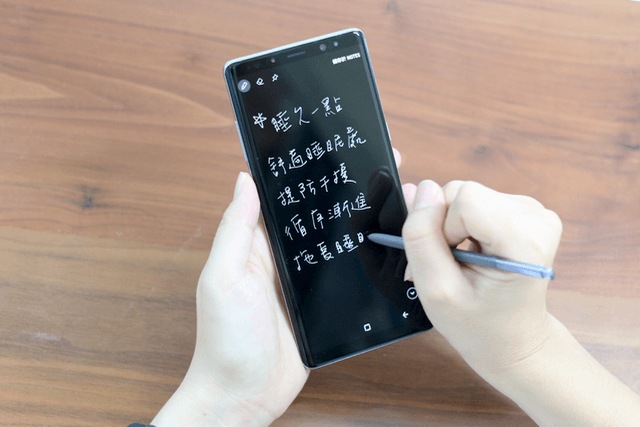 NOTES
睡久一點
舒適睡眠處
提防干擾
循序漸進
拖 睡